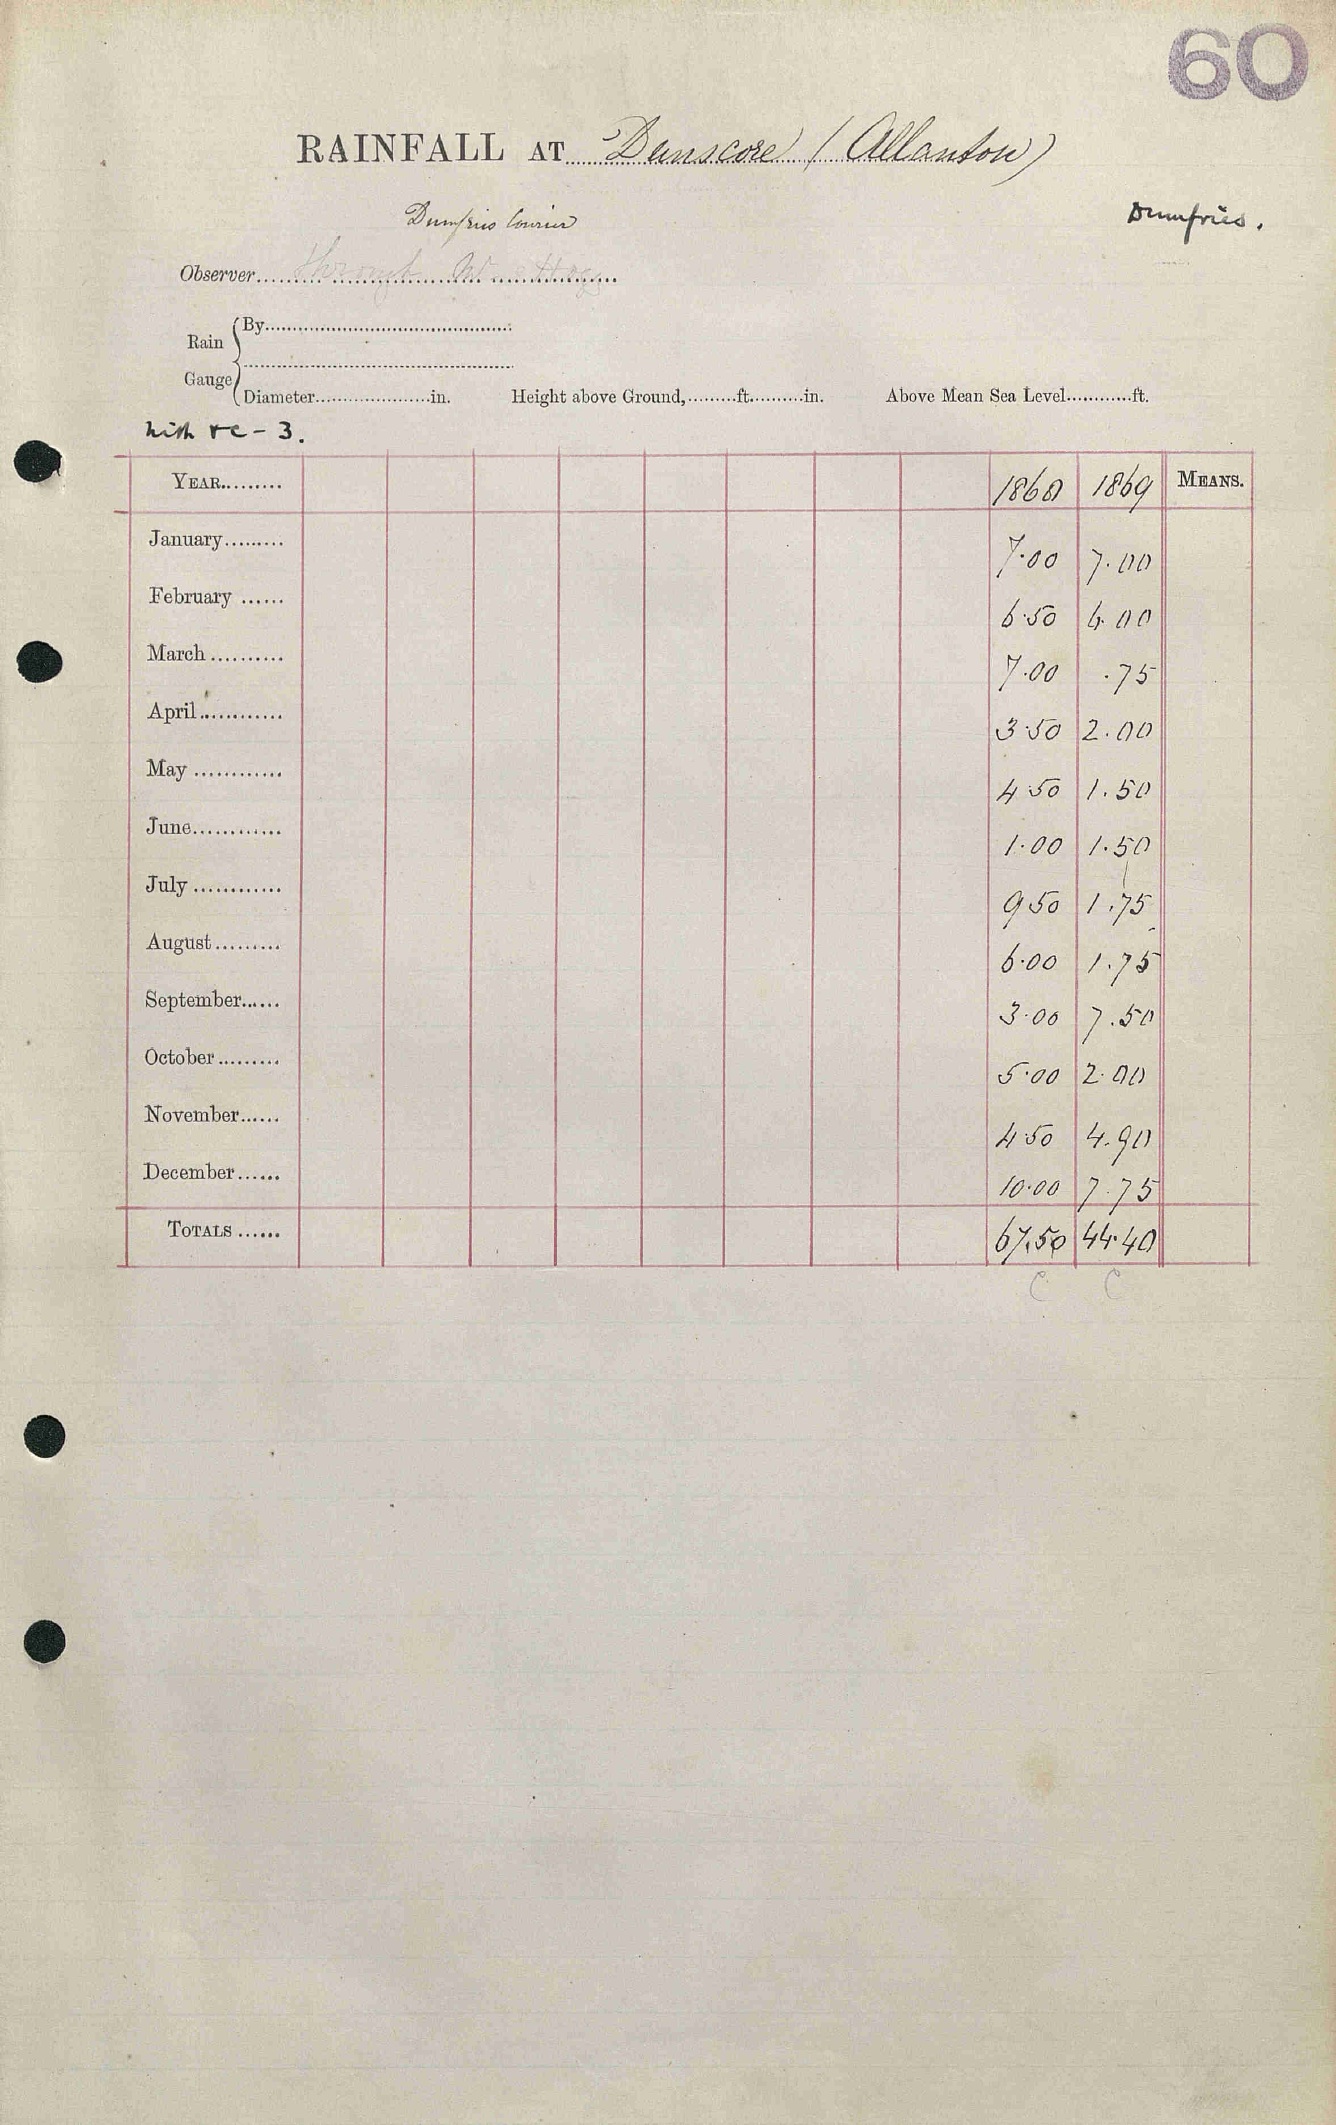 60
RAINFALL AT Dunscore (Allanton)
Dumfries Courier
Dumfries.
Observer through W. Hogg
Rain Gauge
By
Diameter in. Height above Ground, ft. in. Above Mean Sea Level ft.
3.
YEAR 1868 1869 MEANS.
January 7.00 7.00
February 6.50 6.00
March 7.00 .75
April 3.50 2.00
May 4.50 1.50
June 1.00 1.50
July 9.50 1.75
August 6.00 1.75
September 3.00 7.50
October 5.00 2.00
November 4.50 4.90
December 10.00 7.75
TOTALS 67.50 44.40
C C